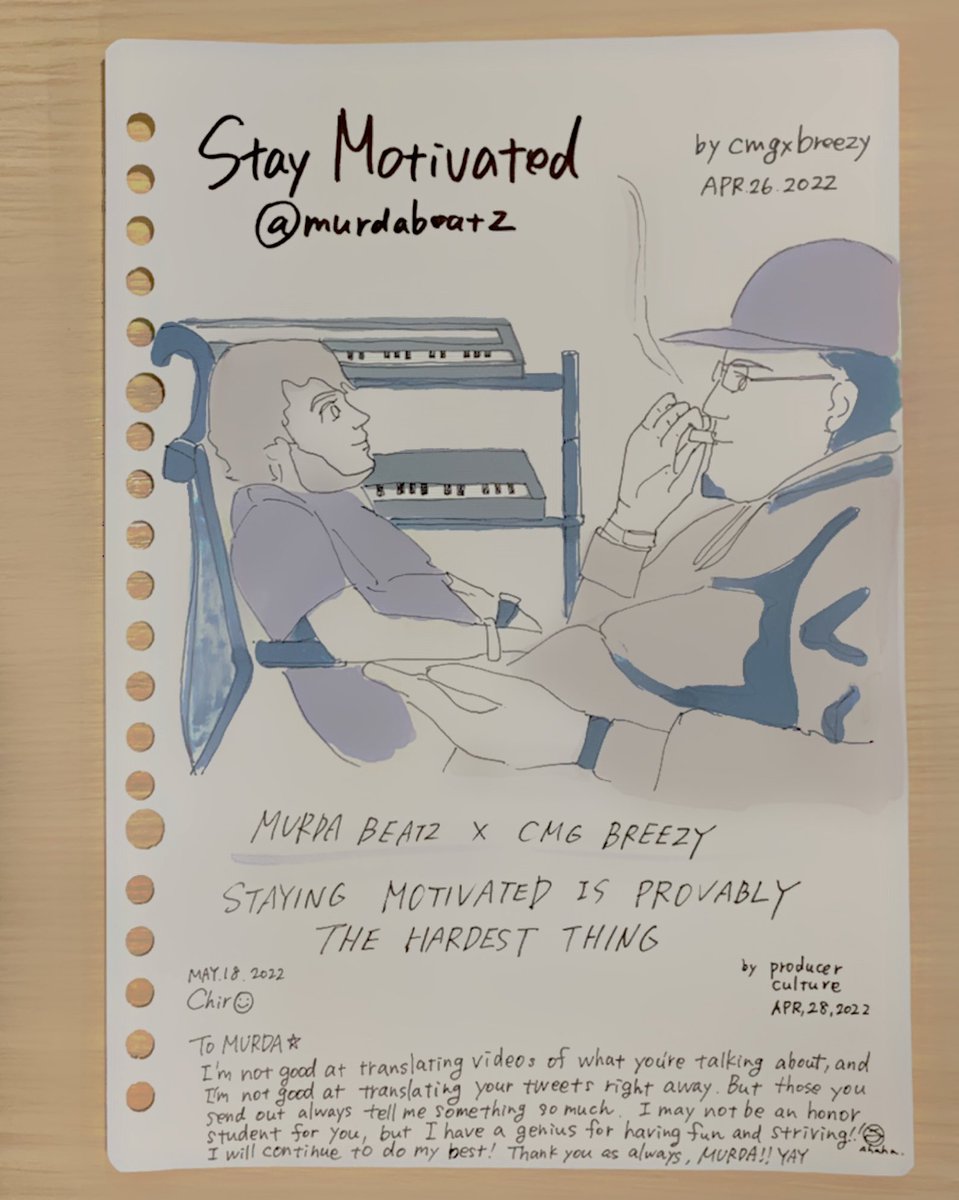 Stay Motivated
@murdabeatz
by cmgxbreezy
APR.26.2022
MURDA BEATZ x CMG BREEZY
STAYING MOTIVATED IS PROVABLY
THE HARDEST THING
MAY.18.2022
Chiro
by producer
culture
APR,28,2022
To MURDA☆
I'm not good at translating videos of what you're talking about, and
I'm not good at translating your tweets right away. But those you
send out always tell me something so much. I may not be an honor
student for you, but I have a genius for having fun and striving!!
I will continue to do my best! Thank you as always, MURDA!! YAY
Ahaha.